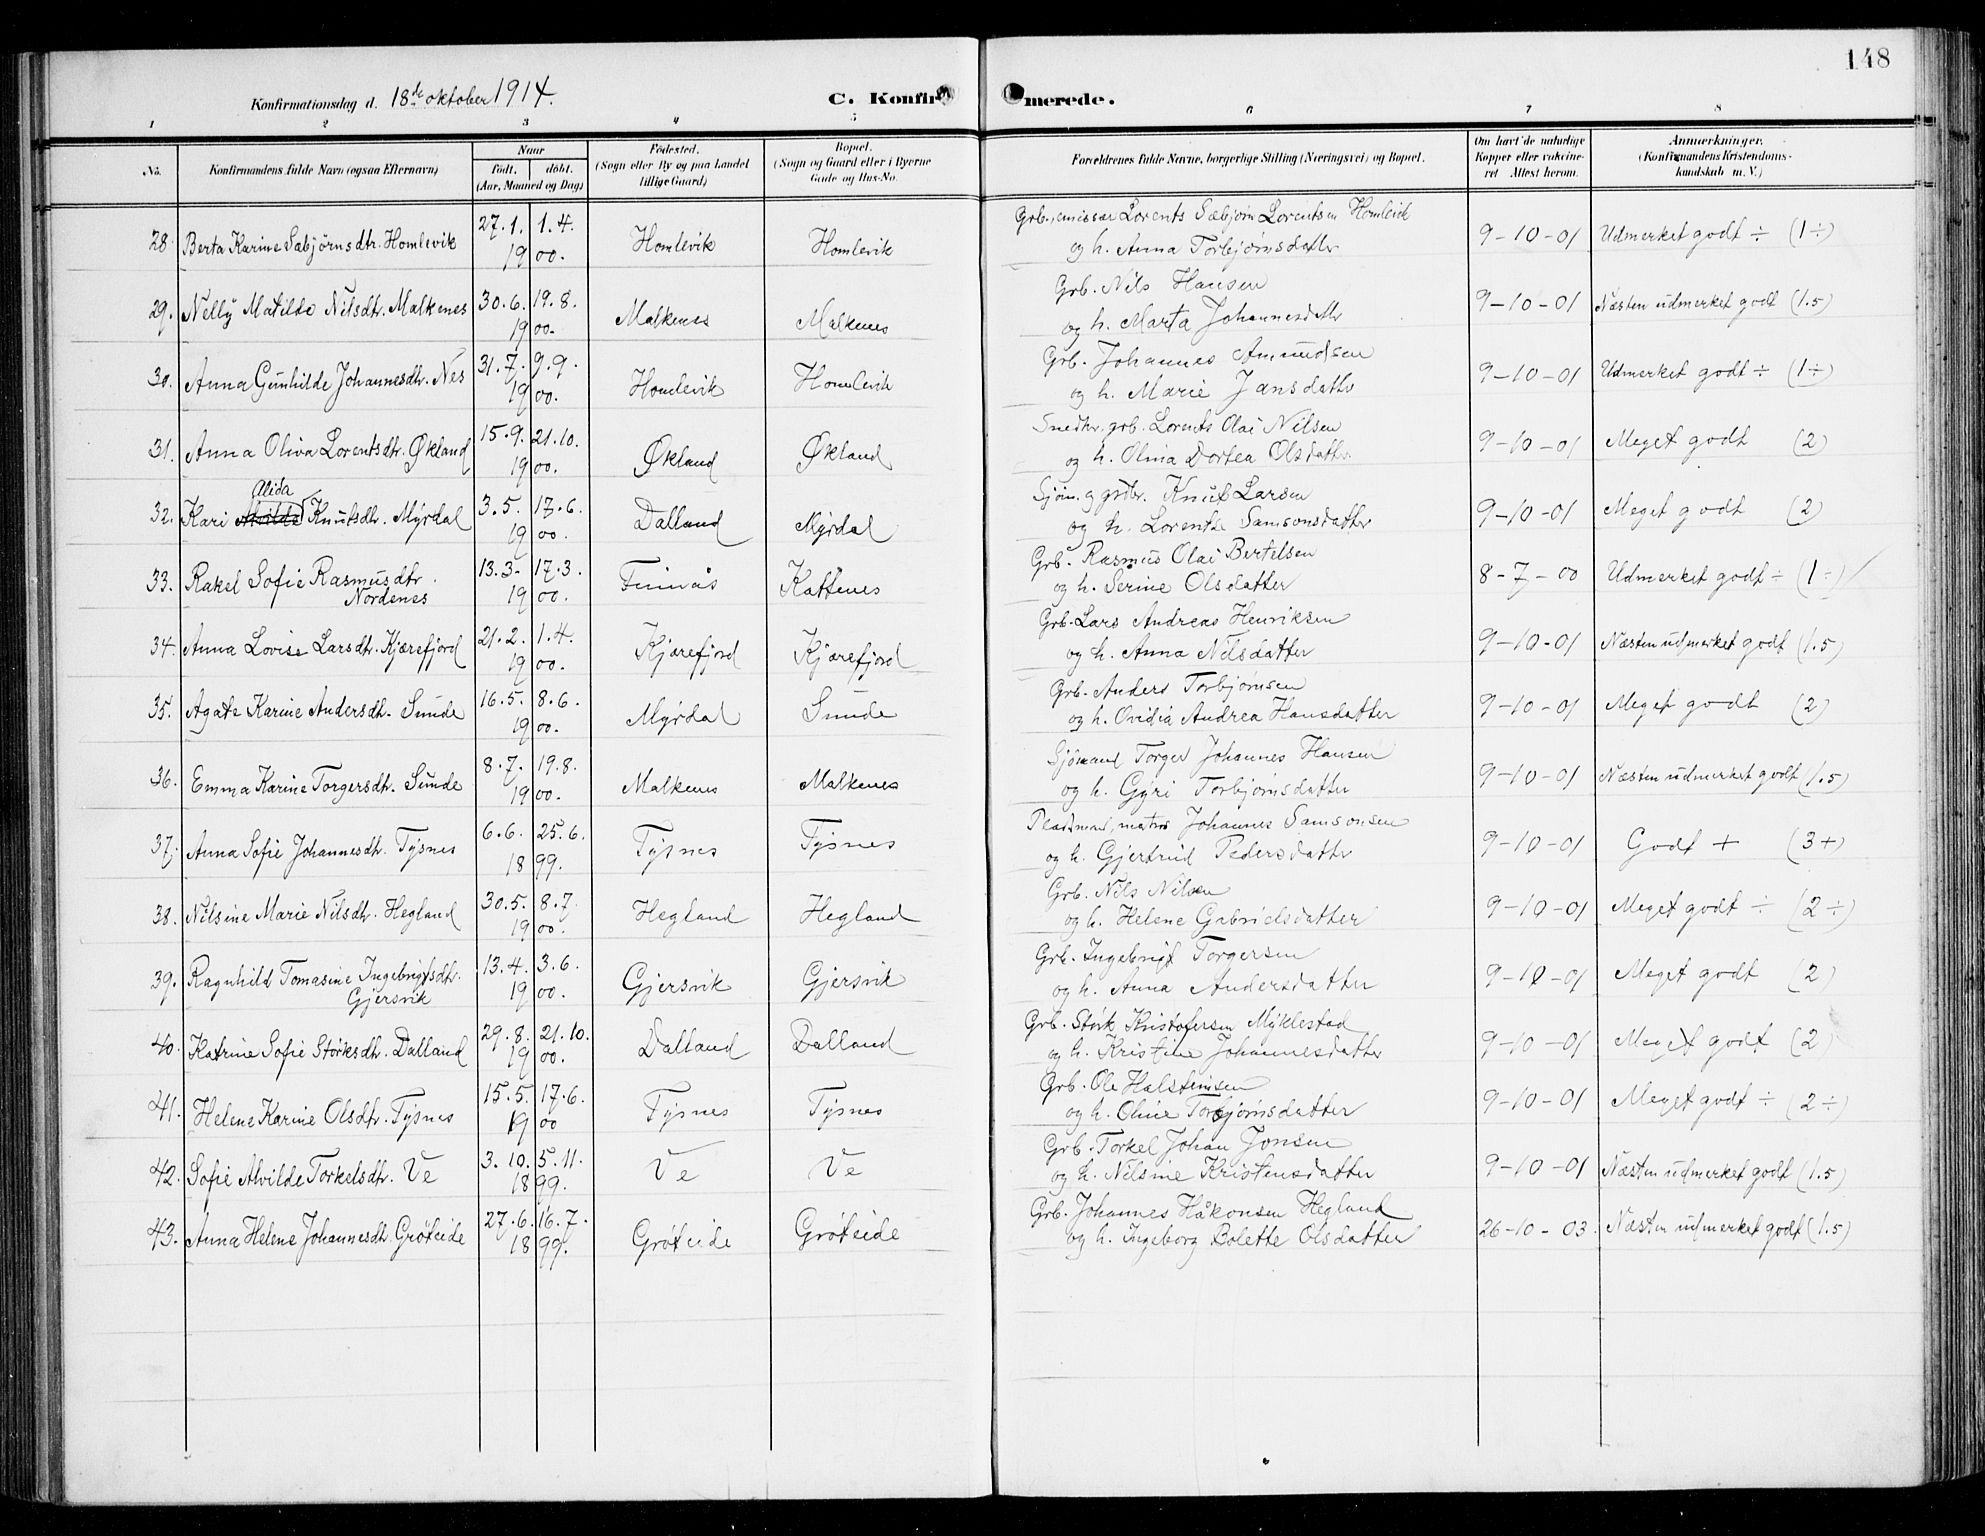 148
Konfirmationsdag d. 18de oktober 1914. C. Konfirmerede.
1 2 3 4 5 6 7 8
No. Konfirmandens fulde Navn (ogsaa Efternavn) Naar födt. döbt. (Aar, Maaned og Dag) Födested. (Sogn eller By og paa Landet tillige Gaard) Bopæl. (Sogn og Gaard eller i Byerne Gade og Hus-No. Forældrenes fulde Navne, borgerlige Stilling (Næringsvei) og Bopæl. Om havt de naturlige Kopper eller vakcineret Attest herom. Anmærkninger. (Konfirmandens Kristendomskundskab m. V.)
28. Berta Karine Sæbjørnsdtr. Homlevik 27.1. 1.4. 1900. Homlevik Homlevik Lorents Sæbjørn Lorentsen Homlevik
og h. Anna Torbjørnsdatter 9-10-01 Udmerket godt ÷ (1÷)
29. Nelly Matilde Nilsdtr. Malkenes 30.6. 19.8. 1900. Malkenes Malkenes Grb. Nils Hansen
og h. Marta Johannesdatter 9-10-01 Næsten udmerket godt (1.5)
30. Anna Gunhilde Johannesdtr. Nes 31.7. 9.9. 1900. Homlevik Homlevik Grb. Johannes Amundsen
og h. Marie Jansdatter 9-10-01 Udmerket godt ÷ (1÷)
31. Anna Oliva Lorentsdtr. Økland 15.9. 21.10. 1900. Økland Økland Snedker, grb. Lorents Olai Nilsen
og h. Olina Dortea Olsdatter. 9-10-01 Meget godt (2)
Alida
32. Kari Knutsdtr. Myrdal 3.5. 17.6. 1900. Dalland Myrdal Knut Larsen
og h. Lorentse Samsonsdatter 9-10-01 Meget godt (2)
33. Rakel Sofie Rasmusdtr. Nordenes 13.3. 17.3. 1900. Finnås Kattenes Grb. Rasmus Olai Bertelsen
og h. Serine Olsdatter 8-7-00 Udmerket godt ÷ (1÷)
34. Anna Lovise Larsdtr. Kjærefjord 21.2. 1.4. 1900. Kjærefjord Kjærefjord Grb. Lars Andreas Henriksen
og h. Anna Nilsdatter 9-10-01 Næsten udmerket godt (1.5)
35. Agate Karine Andersdtr. Sunde 16.5. 8.6. 1900. Myrdal Sunde Grb. Anders Torbjørnsen
og h. Ovidia Andrea Hansdatter 9-10-01 Meget godt (2)
36. Emma Karine Torgersdtr. Sunde 8.7. 19.8. 1900. Malkenes Malkenes Sjömand Torger Johannes Hansen
og h. Gyri Torbjørnsdatter 9-10-01 Næsten udmerket godt (1.5)
37. Anna Sofie Johannesdtr. Tysnes 6.6. 25.6. 1899. Tysnes Tysnes Johannes Samsonsen
og h. Gjertrud Pedersdatter 9-10-01 Godt + (3+)
38. Nilsine Marie Nilsdtr. Hegland 30.5. 8.7. 1900. Hegland Hegland Grb. Nils Nilsen
og h. Helene Gabrielsdatter 9-10-01 Meget godt ÷ (2÷)
39. Ragnhild Tomasine Ingebrigtsdtr. Gjersvik 13.4. 3.6. 1900. Gjersvik Gjersvik Grb. Ingebrigt Torgersen
og h. Anna Andersdatter 9-10-01 Meget godt (2)
40. Katrine Sofie Størksdtr. Dalland 29.8. 21.10. 1900. Dalland Dalland Grb. Størk Kristofersen Myklestad
og h. Kristine Johannesdatter 9-10-01 Meget godt (2)
41. Helene Karine Olsdtr. Tysnes 15.5. 17.6. 1900 Tysnes Tysnes Grb. Ole Halsteinsen
og h. Oline Torbjørnsdatter 9-10-01 Meget godt ÷ (2÷)
42. Sofie Alvilde Torkelsdtr. Ve 3.10. 5.11. 1899. Ve Ve Grb. Torkel Johan Jonsen
og h. Nilsine Kristensdatter 9-10-01 Næsten udmerket godt (1.5)
43. Anna Helene Johannesdtr. Grøteide 27.6. 16.7. 1899. Grøteide Grøteide Grb. Johannes Håkonsen Hegland
og h. Ingeborg Bolette Olsdatter 26-10-03. Næsten udmerket godt (1.5)